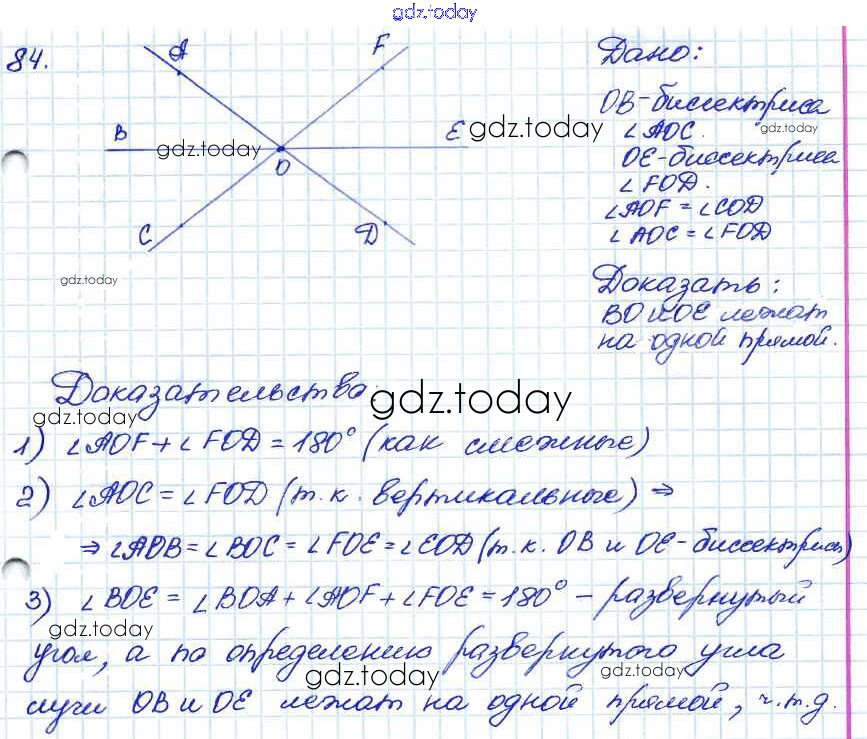 gdz.today
84.
A
F
B
gdz.today
E
O
C
D
gdz.today
Дано:
OB-биссектриса
gdz.today
∠AOC.
gdz.today
OE-биссектриса
∠FOD.
∠AOF = ∠COD
∠AOC = ∠FOD
Доказать:
BO и OE лежат
на одной прямой.
Доказательство:
gdz.today
gdz.today
1) ∠AOF + ∠FOD = 180° (как смежные)
2) ∠AOC = ∠FOD (т.к. вертикальные) ⇒
⇒ ∠AOB = ∠BOC = ∠FOE = ∠EOD (т.к. OB и OE-биссектрисы)
3) ∠BOE = ∠BOA + ∠AOF + ∠FOE = 180° – развернутый
gdz.today
угол, а по определению развернутого угла
gdz.today
лучи OB и OE лежат на одной прямой, ч.т.д.